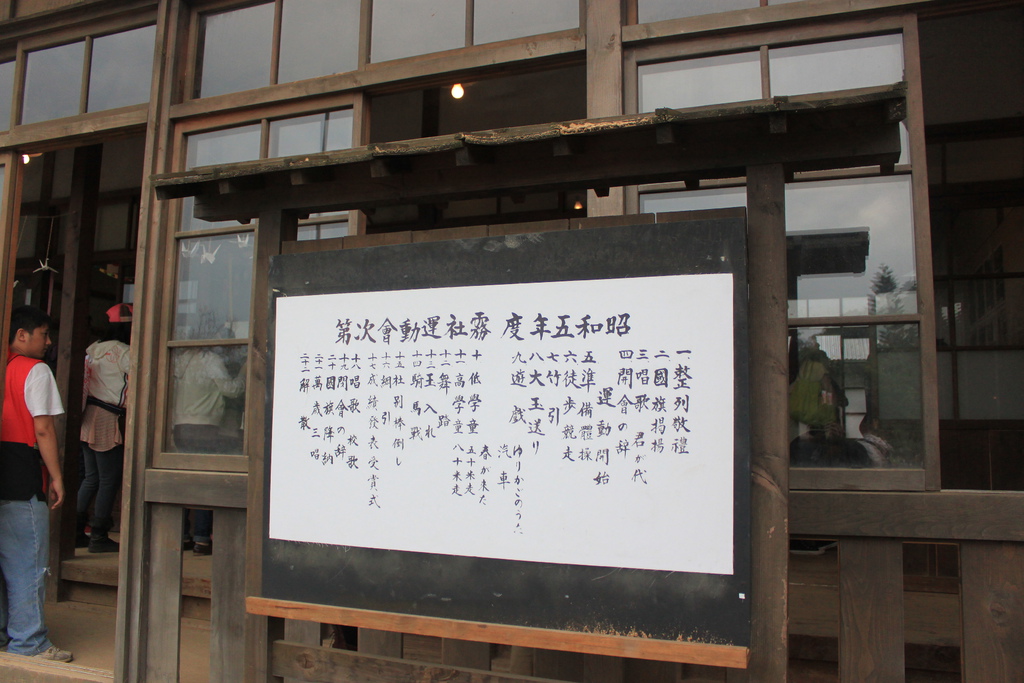 昭和五年度 霧社運動會次第
一、整列敬禮
二國旗掲揚
三唱歌 君が代
四開會の辞
運動開始
五準備體操
六徒歩競走
七竹引
八大玉送り
九遊戯 汽車 ゆりかごのうた
十低學童 春が来た
十一高學童 五十米走 八十米走
十二舞踏
十三玉入れ
十四騎馬戦
十五社別棒倒し
十六綱引
十七成績發表受賞式
十八唱歌 校歌
十九閉會の辞
二十國旗降納
二十一萬歳三唱
二十二解散